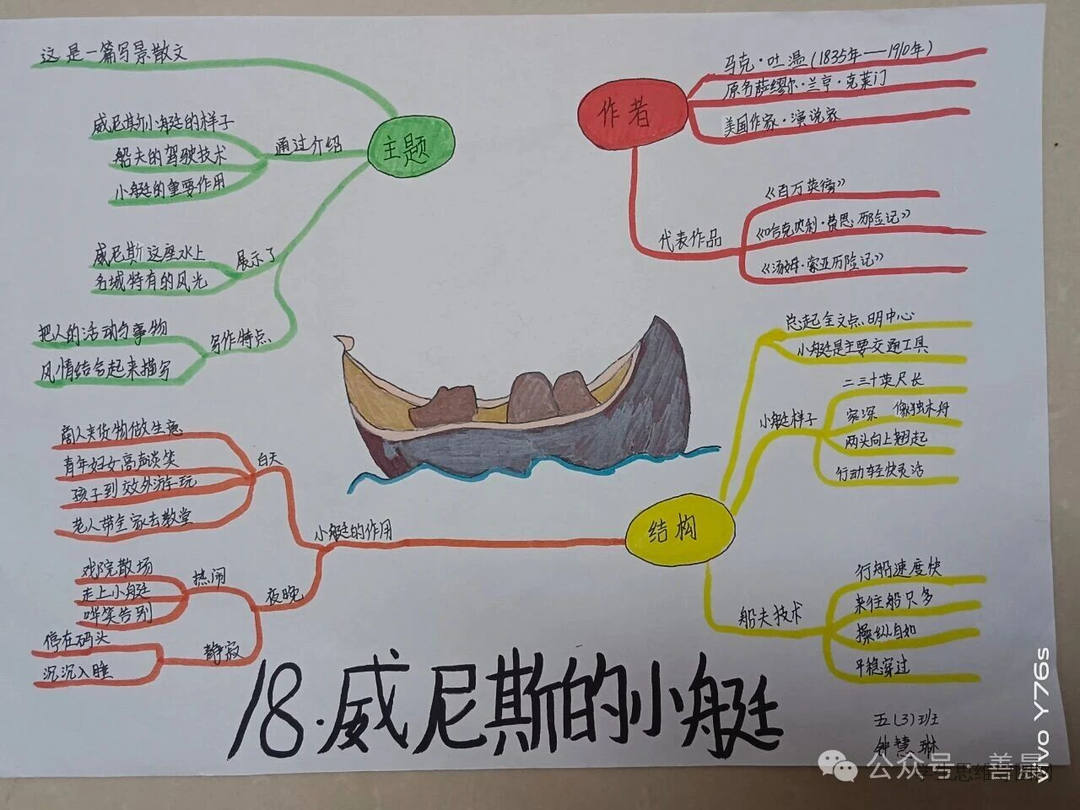 这是一篇写景散文
主题
通过介绍
威尼斯小艇的样子
船夫的驾驶技术
小艇的重要作用
展示了
威尼斯这座水上
名城特有的风光
写作特点
把人的活动与事物
风情结合起来描写
作者
马克·吐温(1835年——1910年)
原名萨缪尔·兰亨·克莱门
美国作家·演说家
代表作品
《百万英镑》
《哈克贝利·费恩历险记》
《汤姆·索亚历险记》
结构
总起全文点明中心
小艇是主要交通工具
小艇样子
二三十英尺长
窄深 像独木舟
两头向上翘起
行动轻快灵活
船夫技术
行船速度快
来往船只多
操纵自如
平稳穿过
小艇的作用
白天
商人夹货物做生意
青年妇女高声谈笑
孩子到郊外游玩
老人带全家去教堂
夜晚
热闹
戏院散场
走上小艇
哗笑告别
静寂
停在码头
沉沉入睡
18.威尼斯的小艇
五(3)班
钟慧琳
vivo Y76s
公众号·善晟